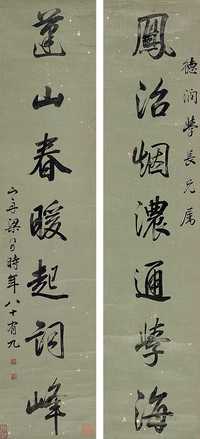 德润學長兄属
鳳沼烟濃通學海
蓬山春暖起詞峰
山舟梁同書時年八十有九